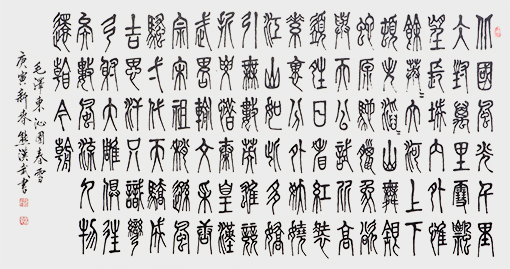 北國風光千里
冰封萬里雪飄
望長城內外惟
餘莽〻大河上下
頓失滔〻山舞銀
蛇原馳蠟象欲
與天公試比高
須晴日看紅裝
素裹分外妖嬈
江山如此多嬌
引無數英雄競
折腰惜秦皇漢
武略輸文采唐
宗宋祖稍遜風
騷一代天驕成
吉思汗只識彎
弓射大雕俱往
矣數風流人物
還看今朝
毛澤東沁園春雪
庚寅新春熊漢武書